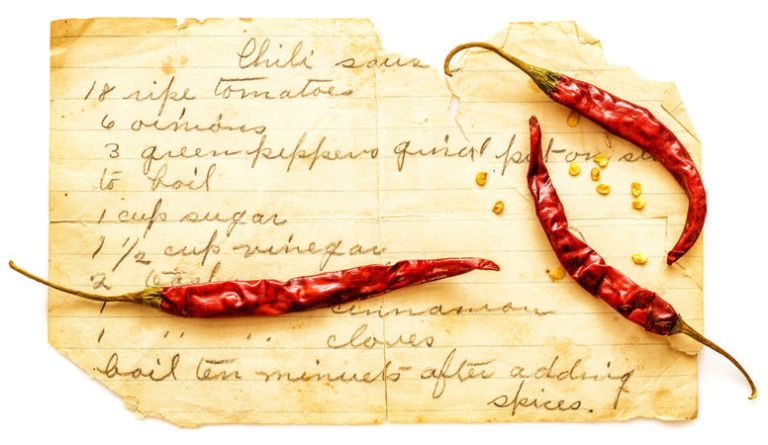 Chili saus
18 ripe tomatoes
6 oinions
3 green peppers put on
to boil
1 cup sugar
1 1/2 cup vinegar
2
1 cinnamon
1 " " cloves
boil ten minuets after adding
spices.